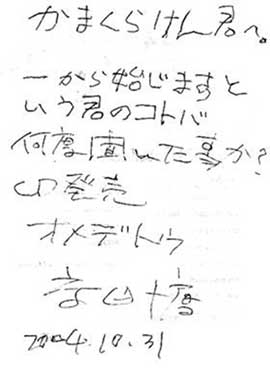 かまくらけん君へ。
一から始じますと
いう君のコトバ
何度聞いた事か?
CD発売
オメデトウ
2004.10.31